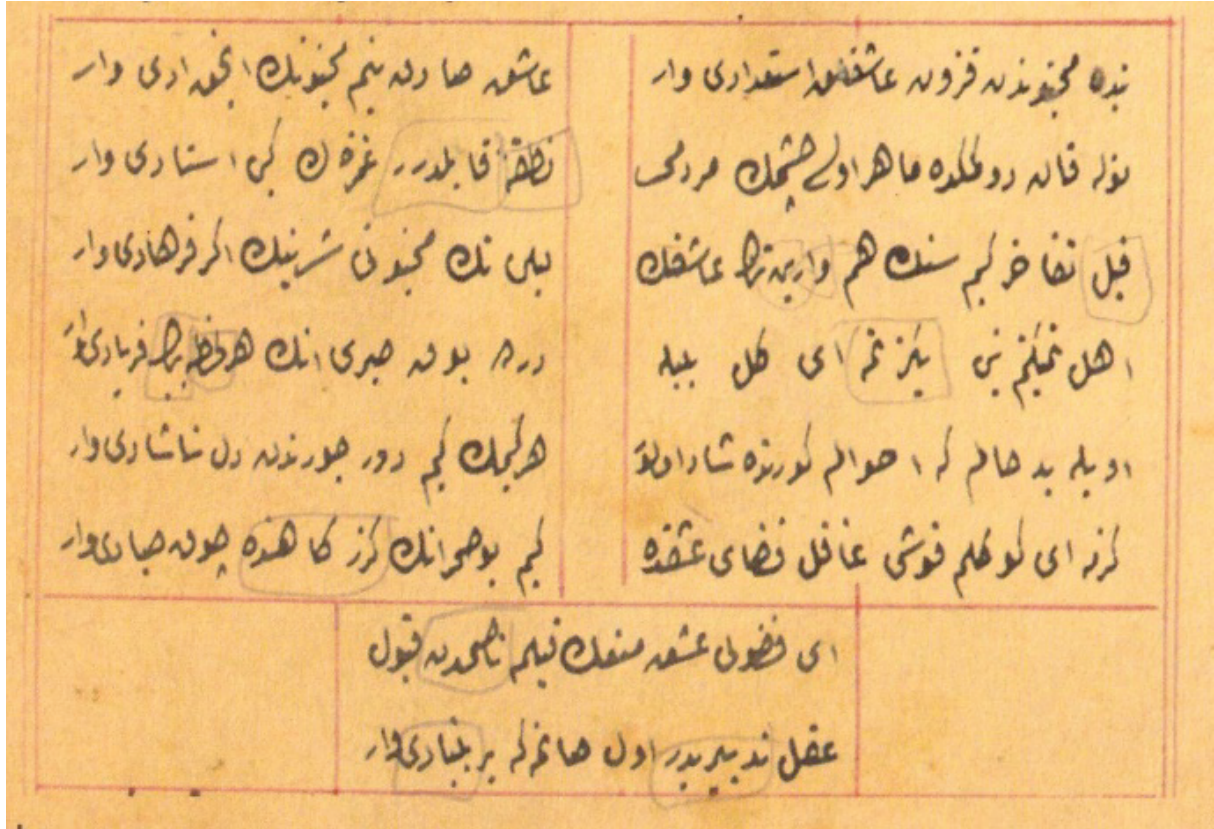 بنده مجنوندن فزون عاشقلق استعدادى وار
عاشق صادق بنم مجنونك انجق ادى وار
نوله قان دوكمكده ماهر اولسه چشمك مردمى
نطفهٔ قابلدرر غمزه ك كبى استادى وار
قيل تفاخر كيم سنك هم وار بن تك عاشقك
ليلى نك مجنونى شيرينك اكر فرهادى وار
اهل تمكينم بنى بكزتمه اى كل بلبله
درده يوق صبرى انك هر لحظه بيك فريادى وار
اويله بد حالم كه احوالم كورنده شاد اولور
هر كيمك كيم دور جورندن دل ناشادى وار
كزمه اى كوكلم قوشى غافل فضاى عشقده
كيم بو صحرانك كذركاهنده چوق صيادى وار
اى فضولى عشق منعن قيلمه ناصحدن قبول
عقل تدبيريدر اول صانمه كه بر بنيادى وار